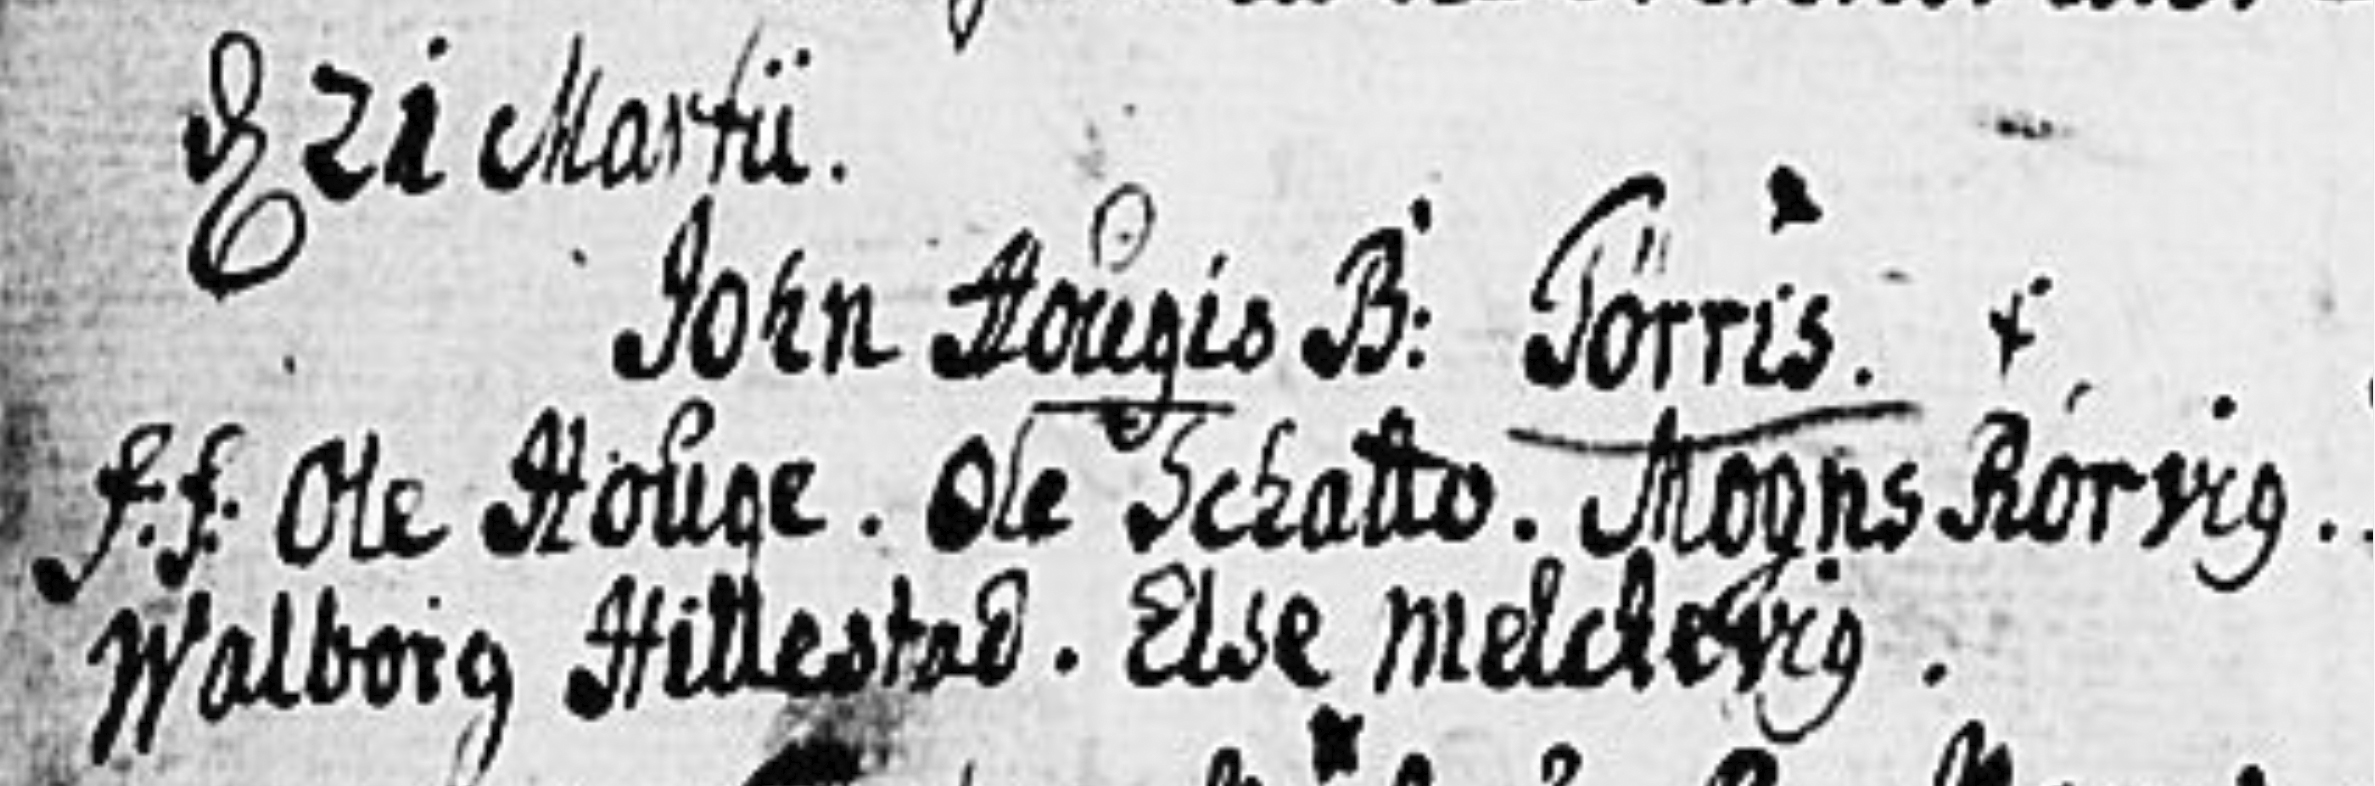 21 Martii.
John Hougis B: Törris.
f.f: Ole Houge. Ole Schatto. Mogns Rörvig.
Walborig Hillestad. Else Melchevig.